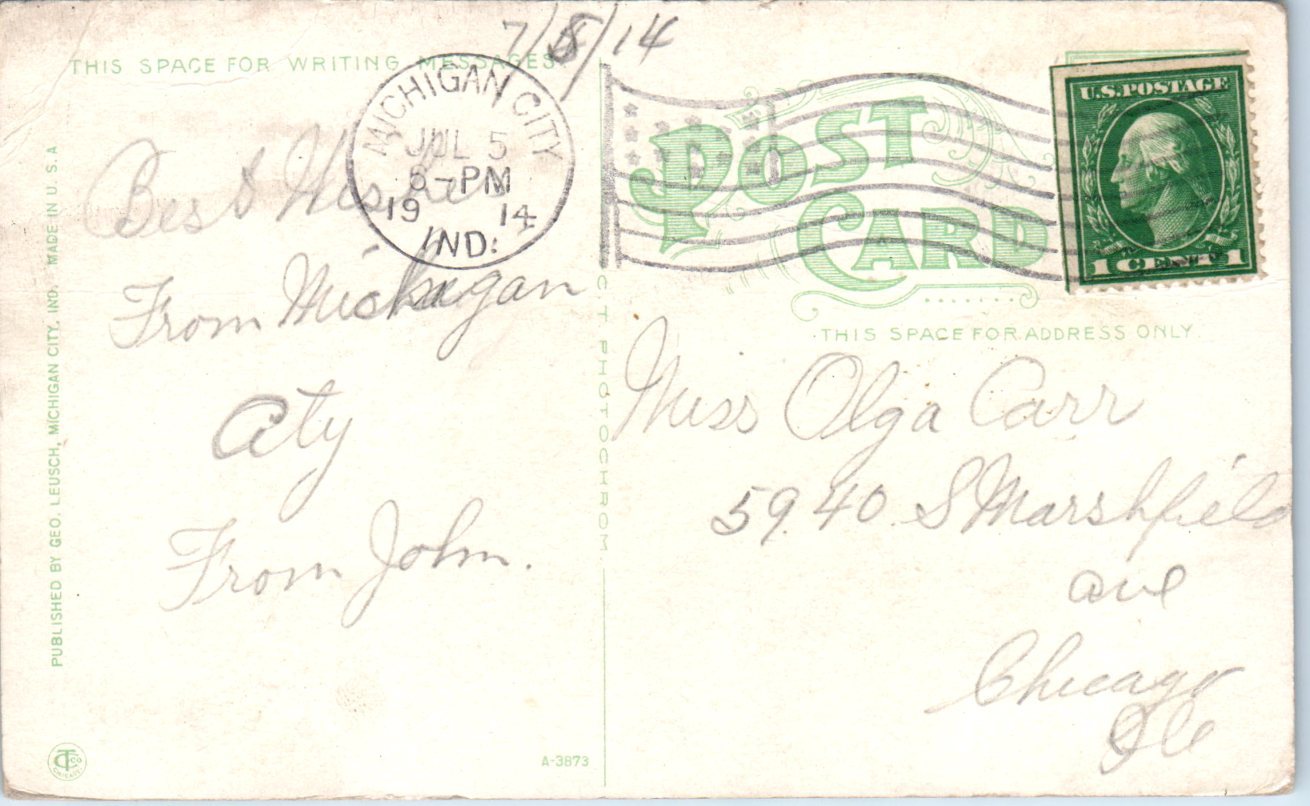 7/5/14
THIS SPACE FOR WRITING MESSAGES.
MICHIGAN CITY
JUL 5
6-PM
19 14
IND.
U.S. POSTAGE
1 CENT 1
POST
CARD
THIS SPACE FOR ADDRESS ONLY.
Best Wishes
From Michigan
City
From John.
Miss Olga Carr
5940 S Marshfield
ave
Chicago
Ill
PUBLISHED BY GEO. LEUSCH, MICHIGAN CITY, IND. MADE IN U.S.A
C.T. PHOTOCHROM
A-3873
CHICAGO